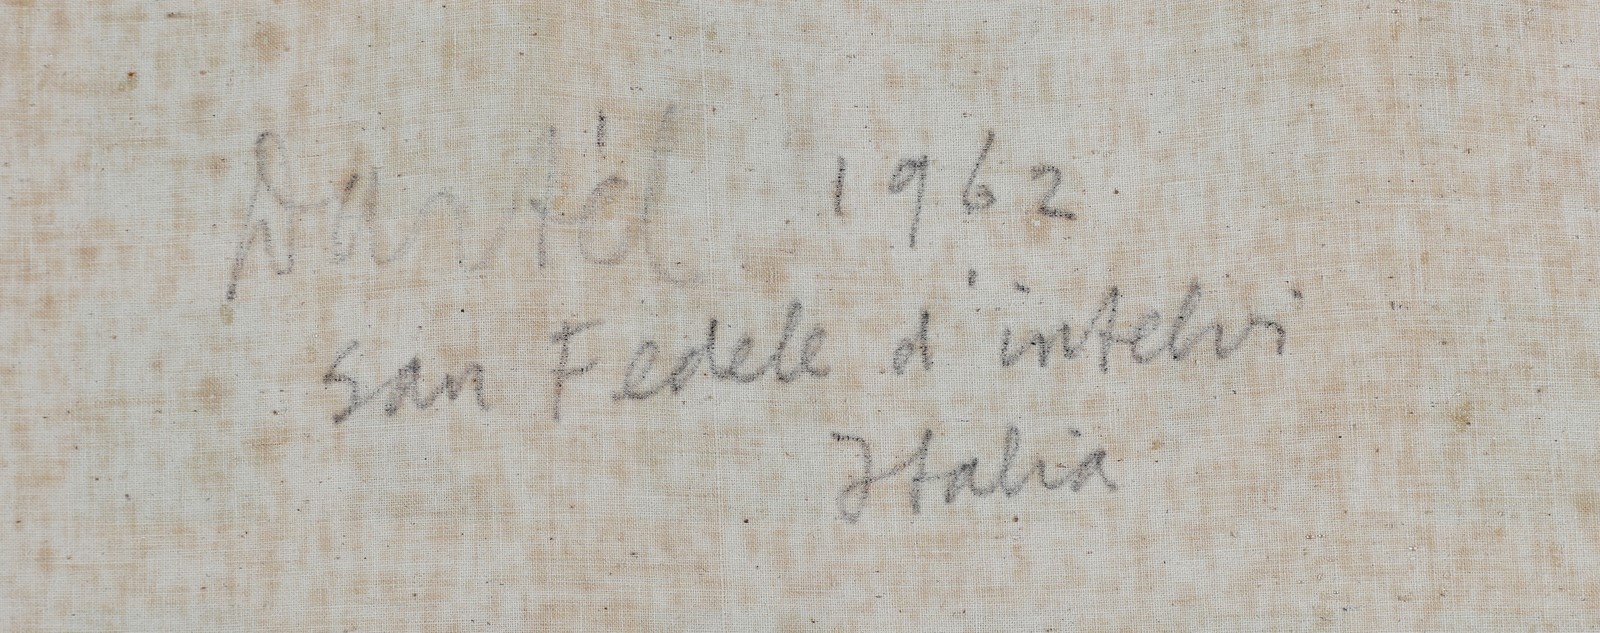 1962
San Fedele d'intelvi
Italia